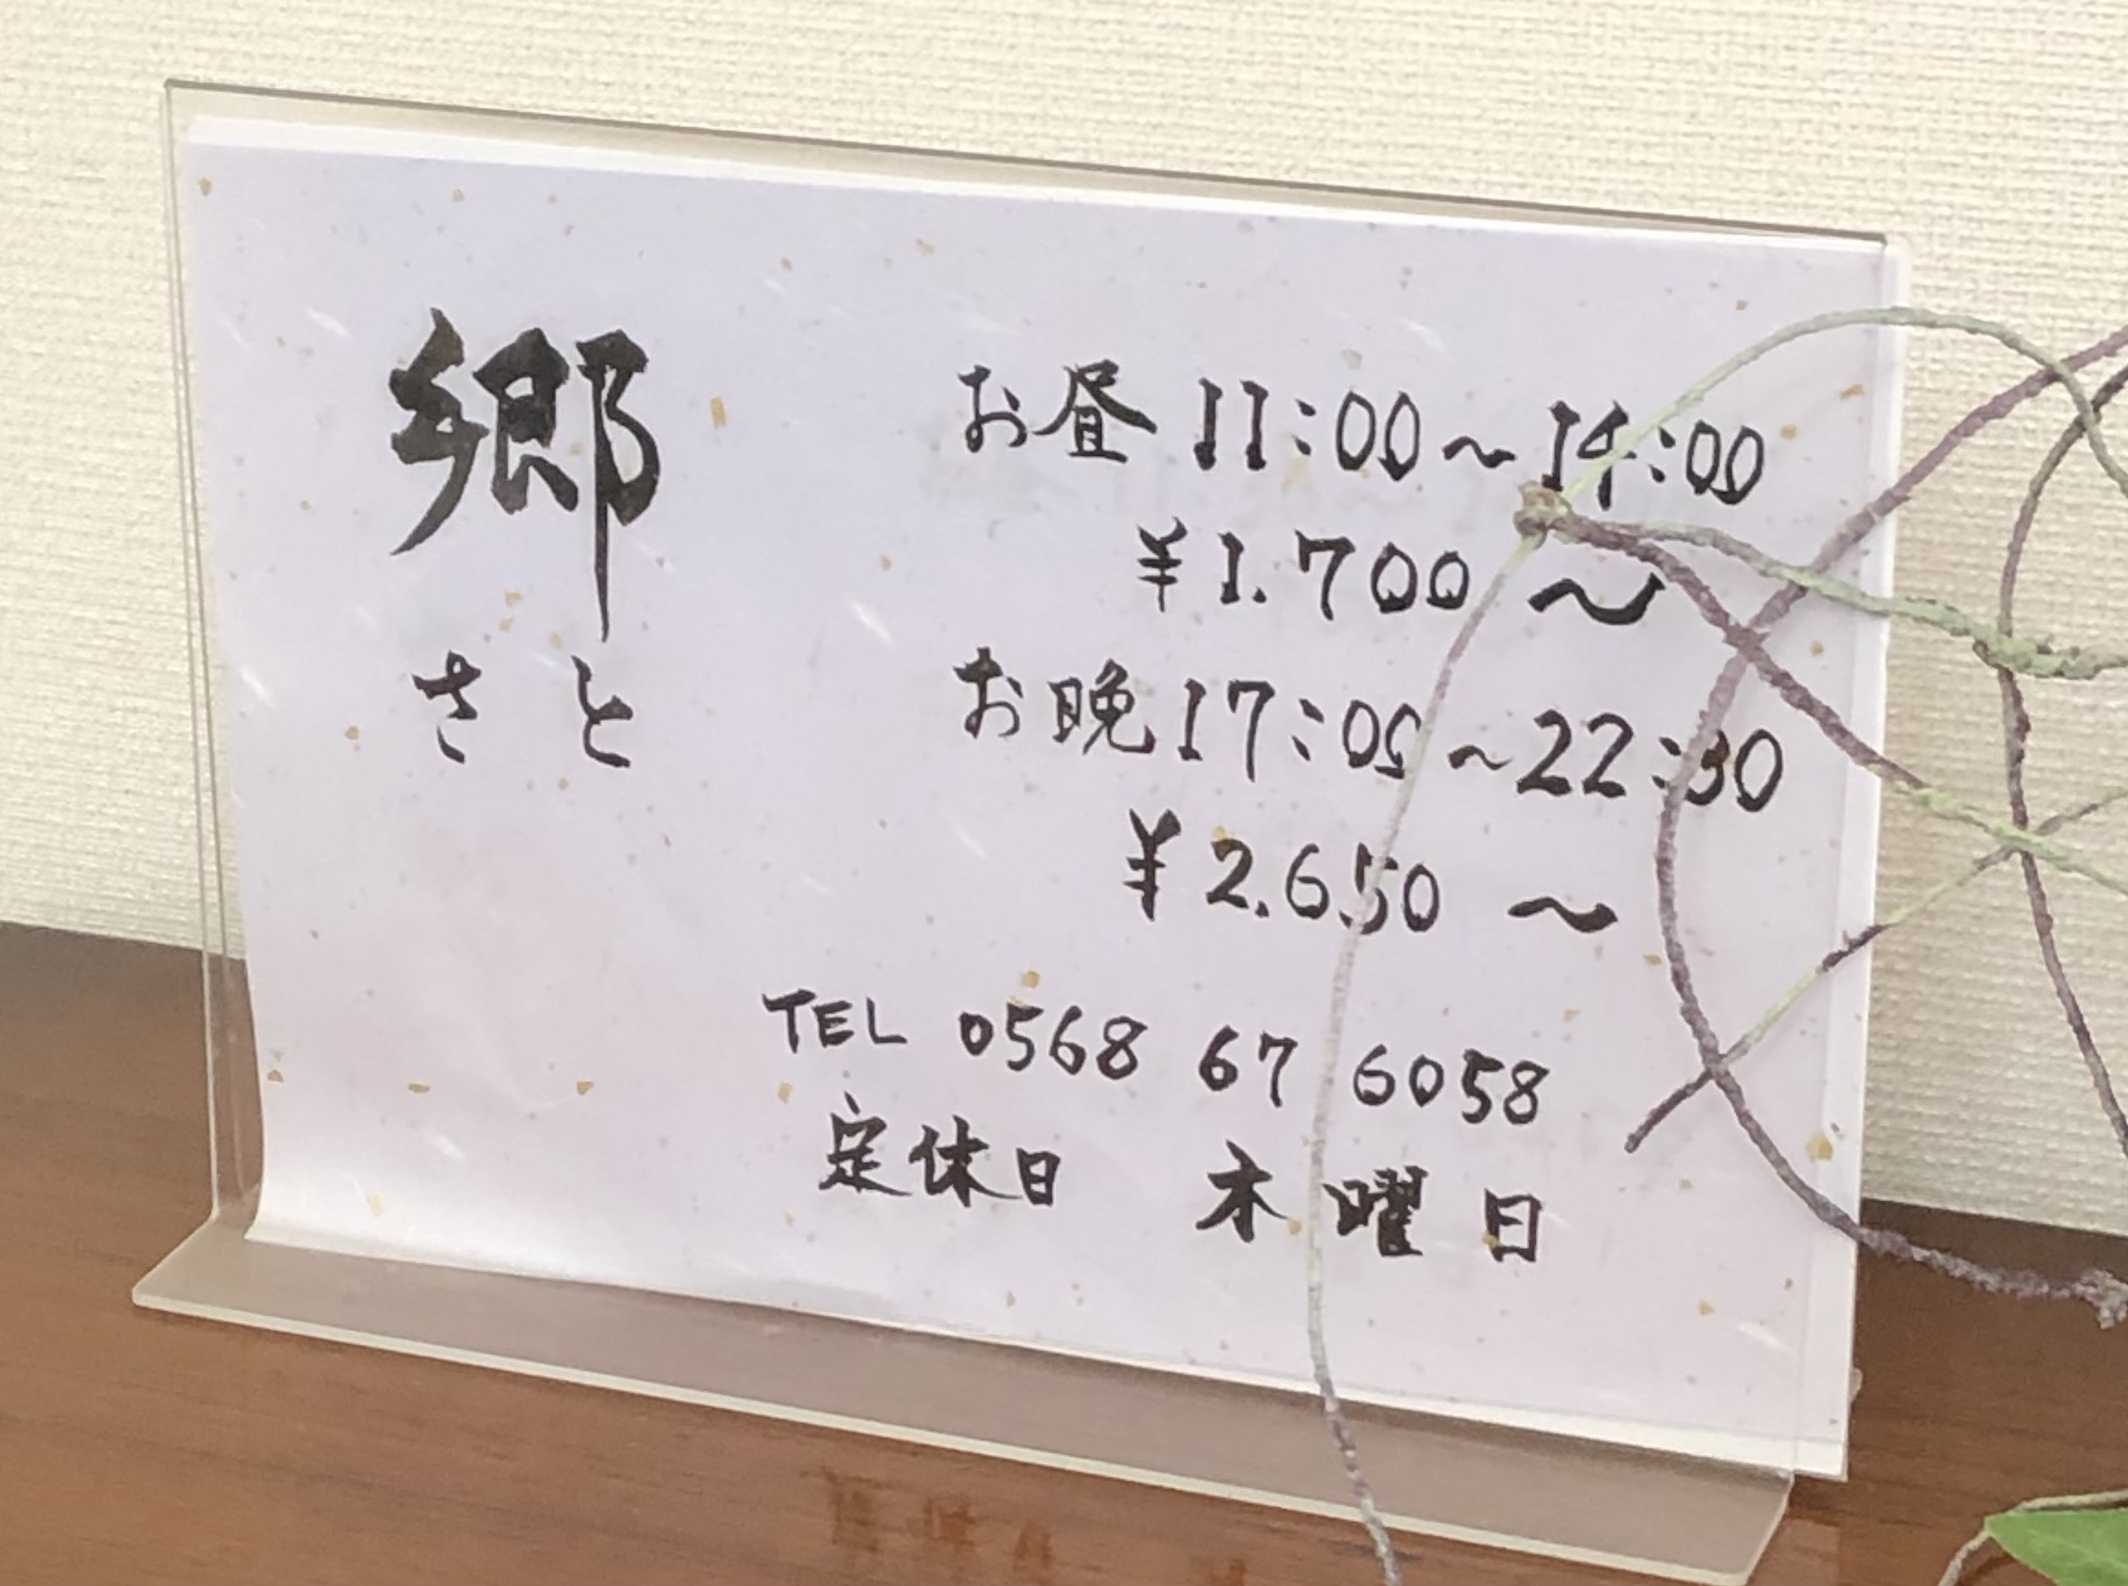 郷
さと
お昼 11:00～14:00
¥1.700～
お晩 17:00～22:30
¥2.650～
TEL 0568 67 6058
定休日 木曜日